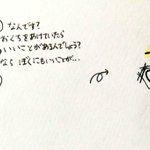 なんです?
おくちをあけていたら
いいことがあるんでしょう?
なら ぼくにもいいことが…